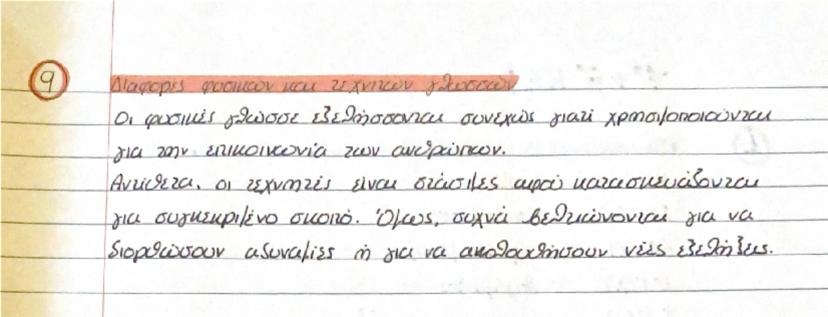 9
Διαφορες φυσικων και τεχνητων γλωσσων
Οι φυσικές γλώσσε εξελίσσονται συνεχώς γιατί χρησιμοποιούνται
για την επικοινωνία των ανθρώπων.
Αντίθετα, οι τεχνητές είναι στάσιμες αφού κατασκευάζονται
για συγκεκριμένο σκοπό. Όμως, συχνά βελτιώνονται για να
διορθώσουν αδυναμίες ή για να ακολουθήσουν νέες εξελήξεις.